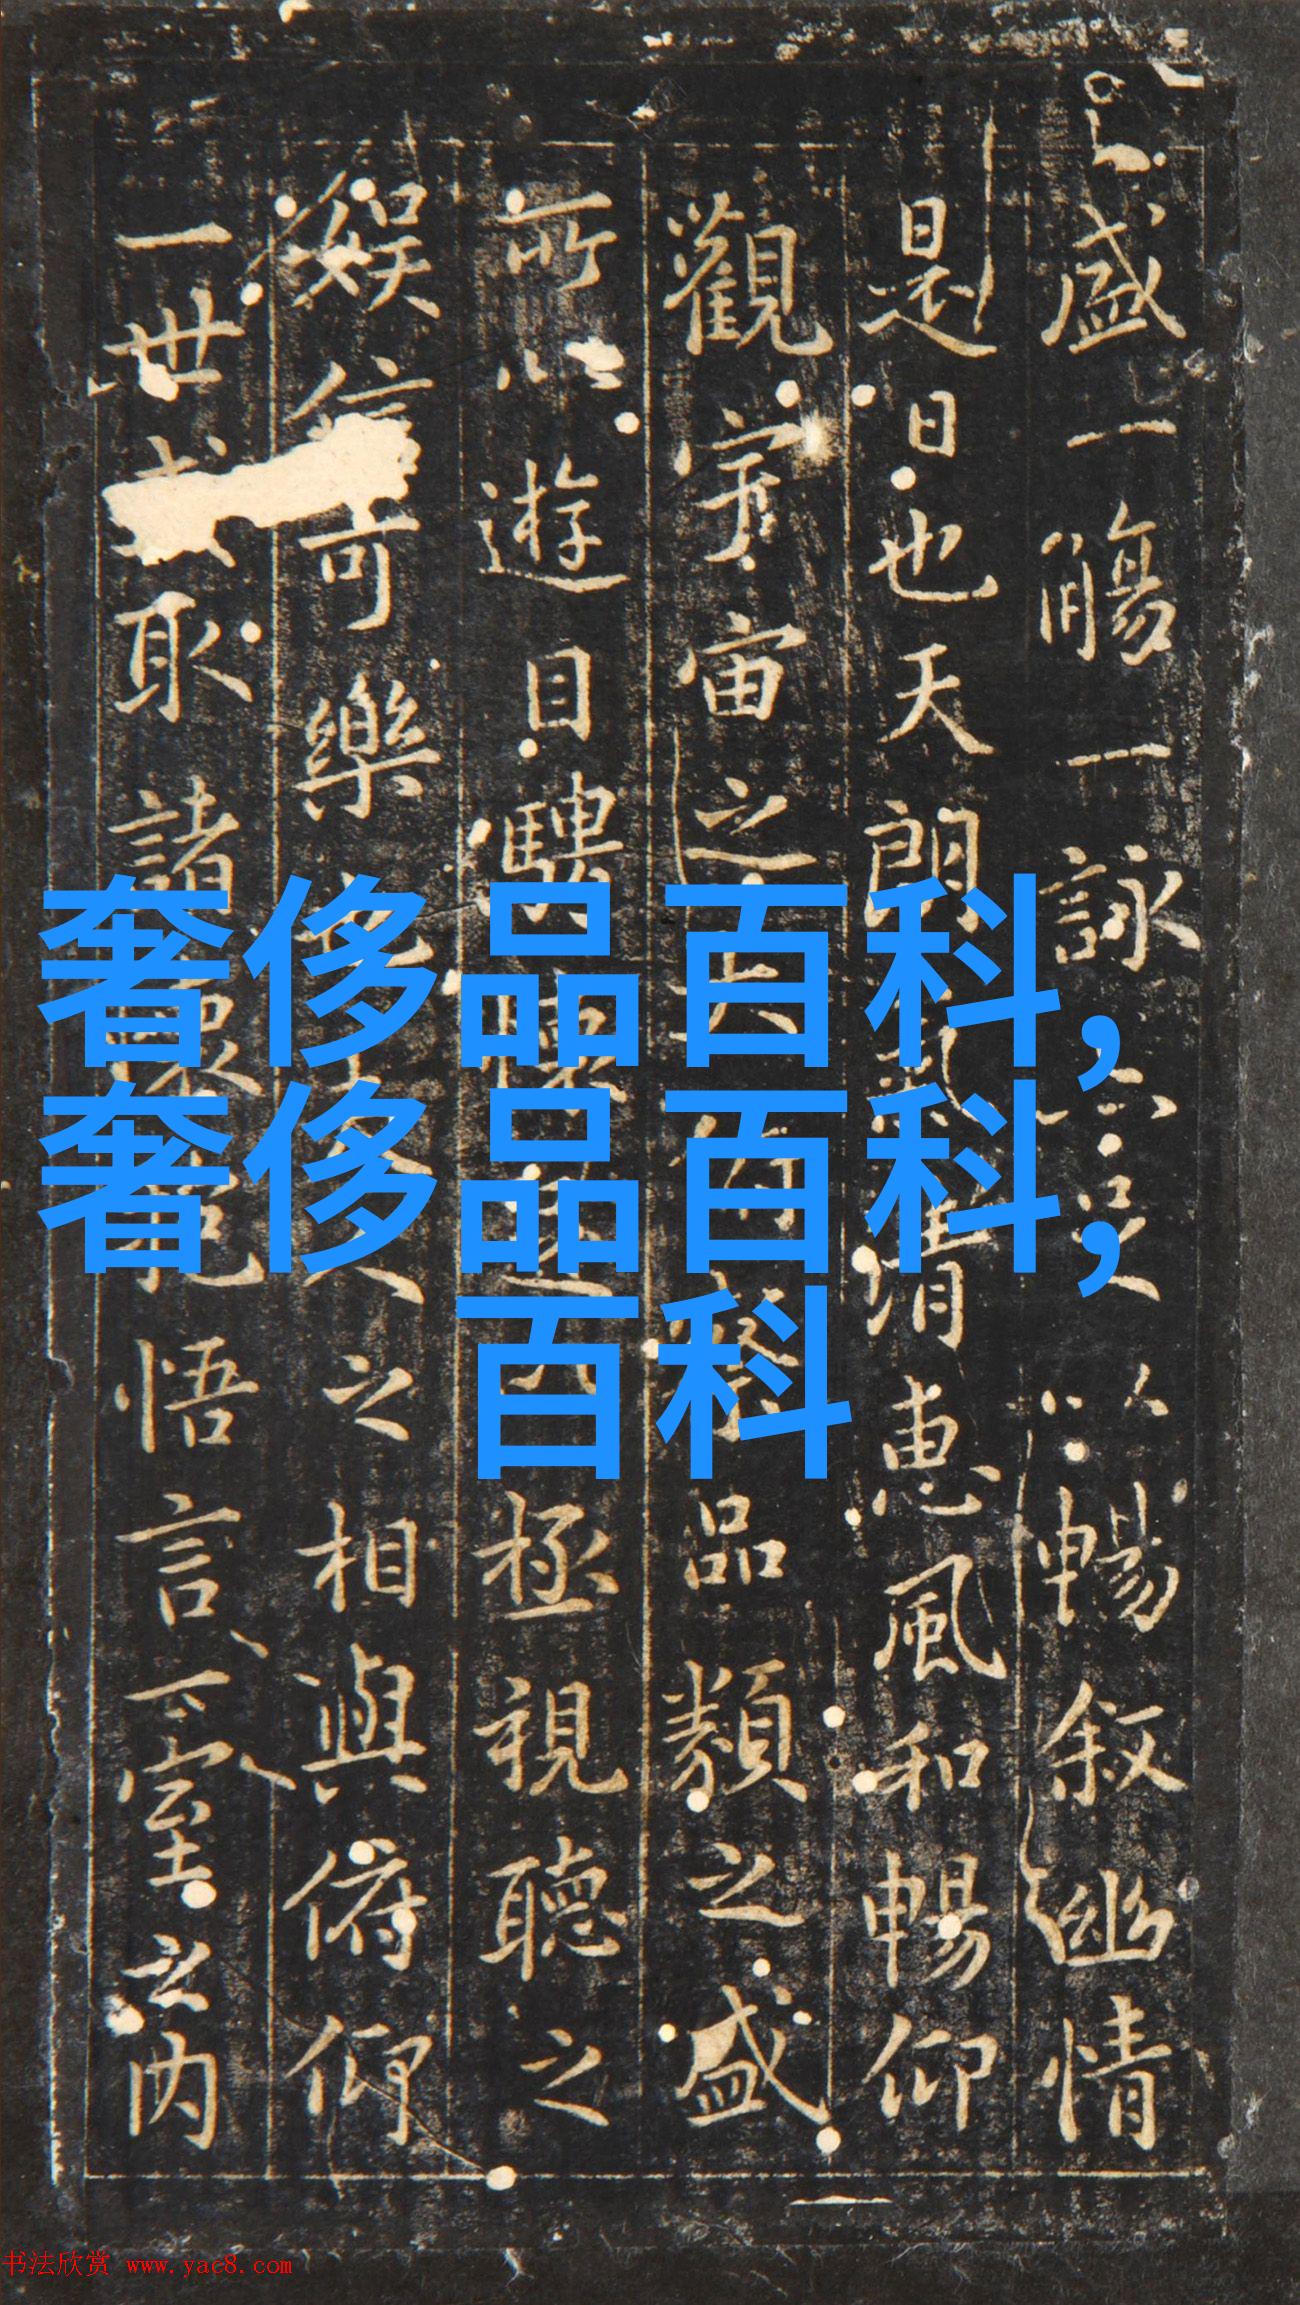 盛一觴一詠亦足以暢叙幽情
是日也天朗氣清惠風和暢仰
觀宇宙之大俯察品類之盛
所以遊目騁懷足以極視聽之
娛信可樂也夫人之相與俯仰
一世或取諸懷抱悟言一室之內
奢侈品百科,
奢侈品百科,
百科
书法欣赏 www.yac8.com